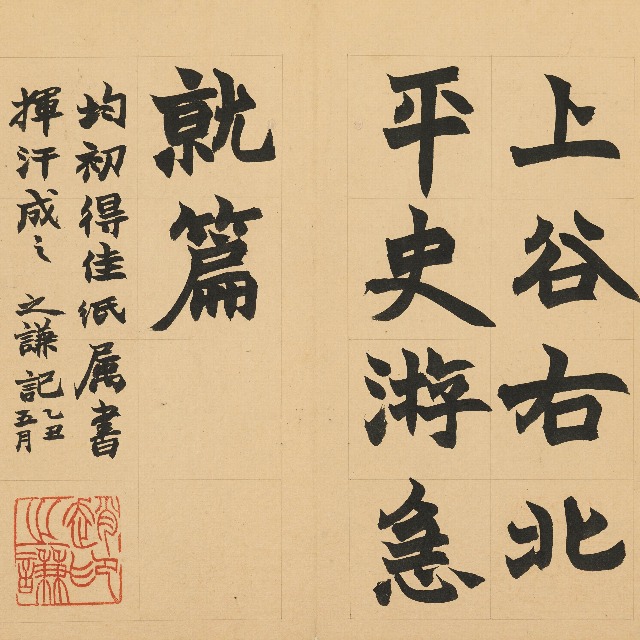 上谷右北
平史游急
就篇
均初得佳纸属書
揮汗成之 之謙記乙丑五月
趙之謙印